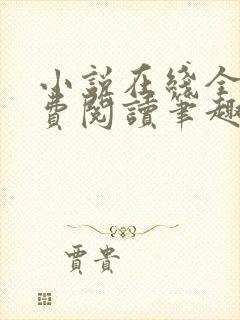 小说在綫全
費閱讀筆趣
賈貴